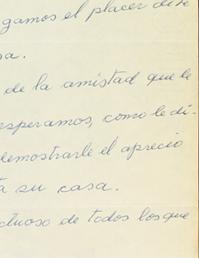 gamos el placer de
sa.
de la amistad que le
esperamos, como le di-
demostrarle el aprecio
su casa.
ctuoso de todos los que